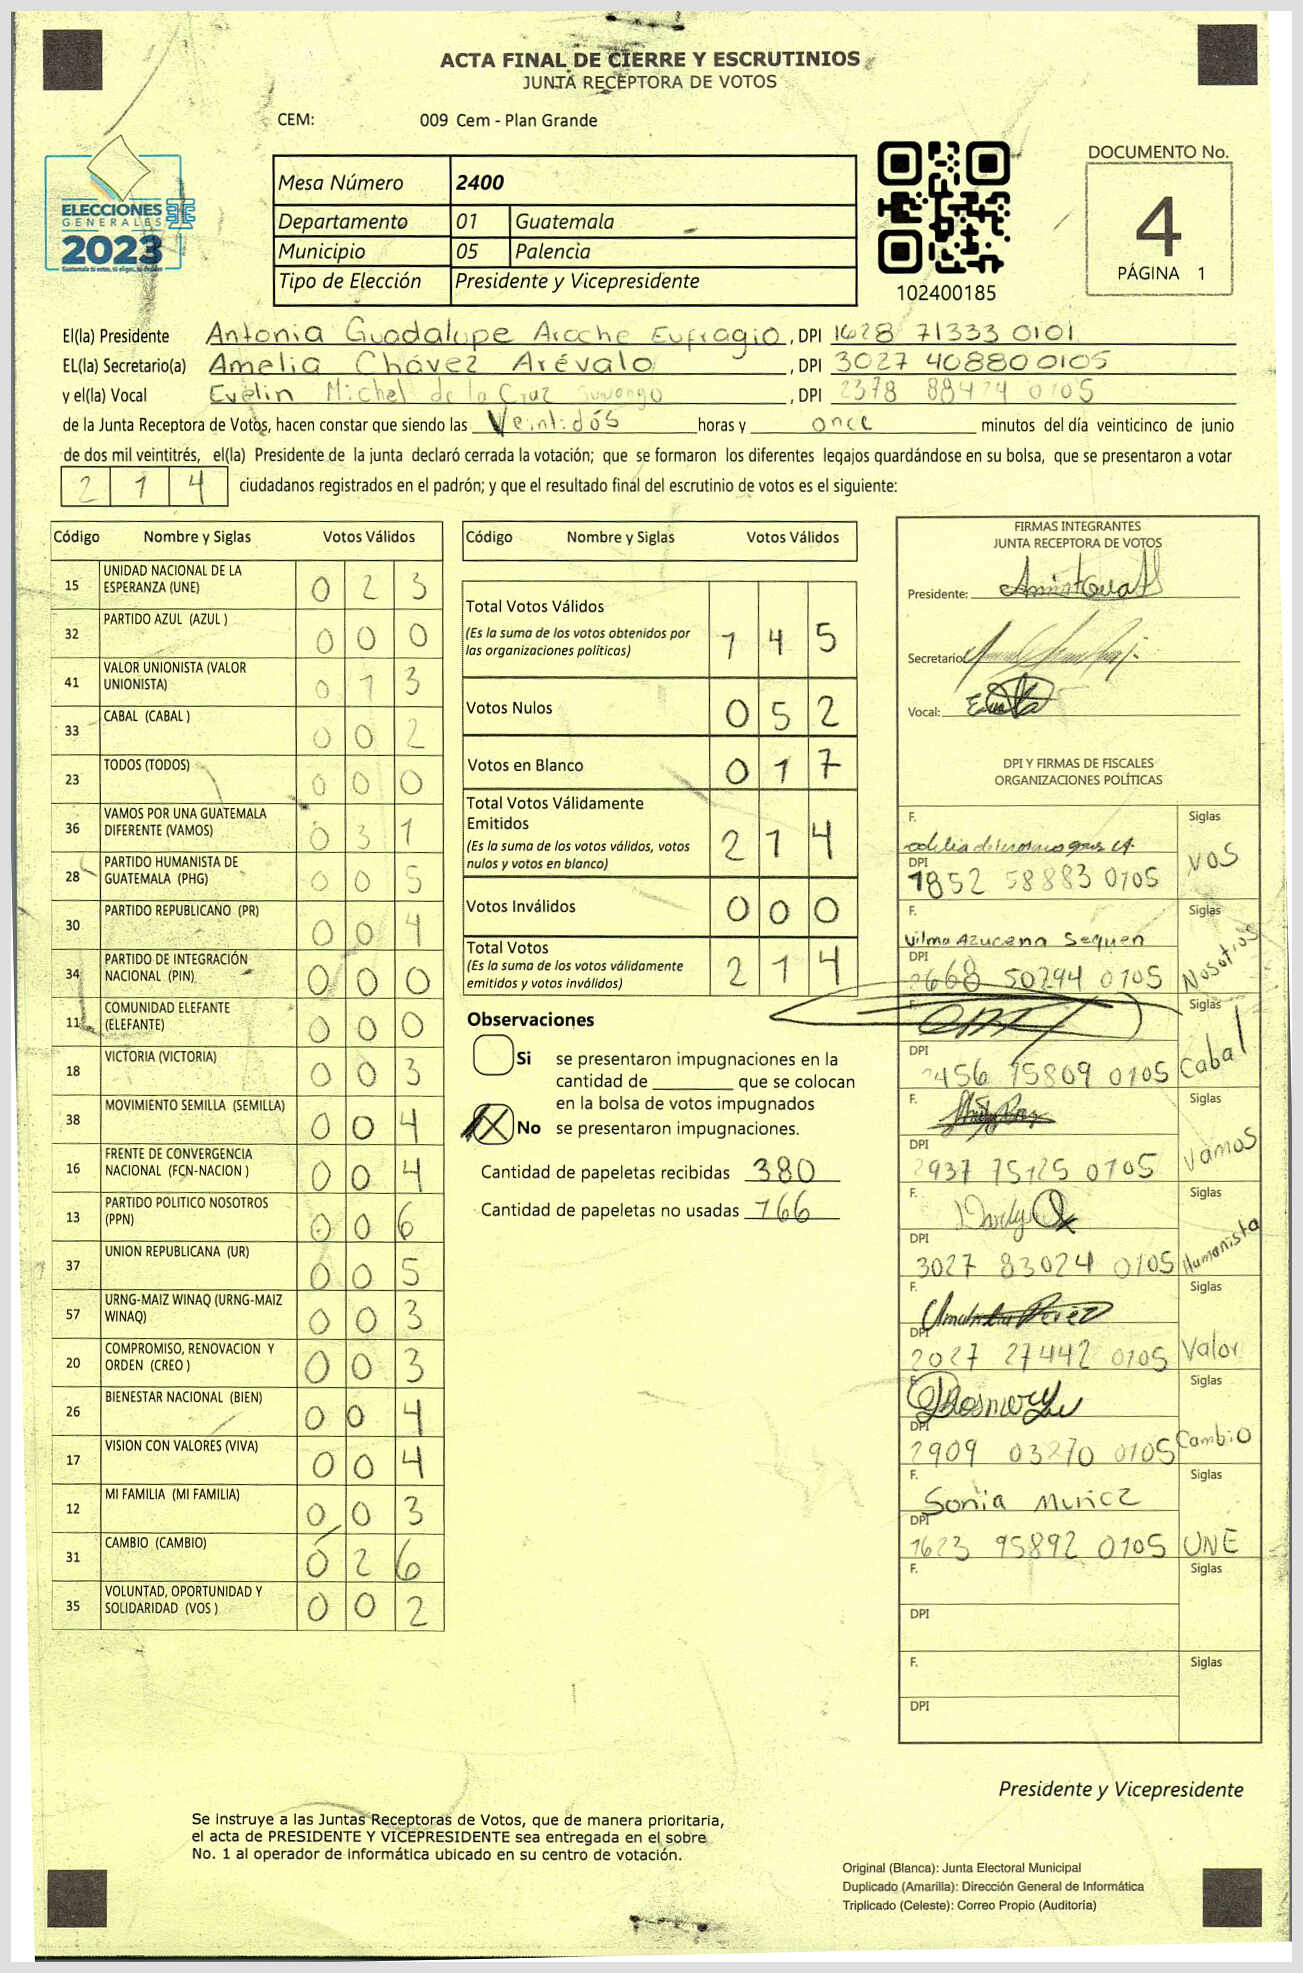 ACTA FINAL DE CIERRE Y ESCRUTINIOS
JUNTA RECEPTORA DE VOTOS
CEM: 009 Cem - Plan Grande
ELECCIONES
GENERALES
2023
Guatemala tú votas, tú eliges, tú decides
Mesa Número 2400
Departamento 01 Guatemala
Municipio 05 Palencia
Tipo de Elección Presidente y Vicepresidente
102400185
DOCUMENTO No.
4
PÁGINA 1
El(la) Presidente Antonia Guadalupe Arache Eufragio, DPI 1628 71333 0101
EL(la) Secretario(a) Amelia Chávez Arévalo, DPI 3027 40880 0105
y el(la) Vocal Evelin Michel de la Cruz, DPI 2378 88424 0105
de la Junta Receptora de Votos, hacen constar que siendo las Veintidós horas y once minutos del día veinticinco de junio
de dos mil veintitrés, el(la) Presidente de la junta declaró cerrada la votación; que se formaron los diferentes legajos guardándose en su bolsa, que se presentaron a votar
214 ciudadanos registrados en el padrón; y que el resultado final del escrutinio de votos es el siguiente:
Código Nombre y Siglas Votos Válidos
15 UNIDAD NACIONAL DE LA ESPERANZA (UNE) 0 2 3
32 PARTIDO AZUL (AZUL ) 0 0 0
41 VALOR UNIONISTA (VALOR UNIONISTA) 0 1 3
33 CABAL (CABAL ) 0 0 2
23 TODOS (TODOS) 0 0 0
36 VAMOS POR UNA GUATEMALA DIFERENTE (VAMOS) 0 3 1
28 PARTIDO HUMANISTA DE GUATEMALA (PHG) 0 0 5
30 PARTIDO REPUBLICANO (PR) 0 0 4
34 PARTIDO DE INTEGRACIÓN NACIONAL (PIN) 0 0 0
11 COMUNIDAD ELEFANTE (ELEFANTE) 0 0 0
18 VICTORIA (VICTORIA) 0 0 3
38 MOVIMIENTO SEMILLA (SEMILLA) 0 0 4
16 FRENTE DE CONVERGENCIA NACIONAL (FCN-NACION ) 0 0 4
13 PARTIDO POLITICO NOSOTROS (PPN) 0 0 6
37 UNION REPUBLICANA (UR) 0 0 5
57 URNG-MAIZ WINAQ (URNG-MAIZ WINAQ) 0 0 3
20 COMPROMISO, RENOVACION Y ORDEN (CREO ) 0 0 3
26 BIENESTAR NACIONAL (BIEN) 0 0 4
17 VISION CON VALORES (VIVA) 0 0 4
12 MI FAMILIA (MI FAMILIA) 0 0 3
31 CAMBIO (CAMBIO) 0 2 6
35 VOLUNTAD, OPORTUNIDAD Y SOLIDARIDAD (VOS ) 0 0 2
Código Nombre y Siglas Votos Válidos
Total Votos Válidos 1 4 5
(Es la suma de los votos obtenidos por
las organizaciones políticas)
Votos Nulos 0 5 2
Votos en Blanco 0 1 7
Total Votos Válidamente
Emitidos 2 1 4
(Es la suma de los votos válidos, votos
nulos y votos en blanco)
Votos Inválidos 0 0 0
Total Votos 2 1 4
(Es la suma de los votos válidamente
emitidos y votos inválidos)
Observaciones
Si se presentaron impugnaciones en la
cantidad de ________ que se colocan
en la bolsa de votos impugnados
No se presentaron impugnaciones.
Cantidad de papeletas recibidas 380
Cantidad de papeletas no usadas 166
FIRMAS INTEGRANTES
JUNTA RECEPTORA DE VOTOS
Presidente:
Secretario
Vocal:
DPI Y FIRMAS DE FISCALES
ORGANIZACIONES POLÍTICAS
F. Siglas
DPI 1852 58883 0105 VOS
F. Vilma Azucena Sequen Siglas
DPI 2668 50294 0105 Nosotros
F. Siglas
DPI 2456 15809 0105 Cabal
F. Siglas
DPI 2937 75125 0105 Vamos
F. Siglas
DPI 3027 83024 0105 Humanista
F. Siglas
DPI 2027 27442 0105 Valor
F. Siglas
DPI 2909 03270 0105 Cambio
F. Sonia Muñoz Siglas
DPI 1623 95892 0105 UNE
F. Siglas
DPI
F. Siglas
DPI
Presidente y Vicepresidente
Se instruye a las Juntas Receptoras de Votos, que de manera prioritaria,
el acta de PRESIDENTE Y VICEPRESIDENTE sea entregada en el sobre
No. 1 al operador de informática ubicado en su centro de votación.
Original (Blanca): Junta Electoral Municipal
Duplicado (Amarilla): Dirección General de Informática
Triplicado (Celeste): Correo Propio (Auditoría)